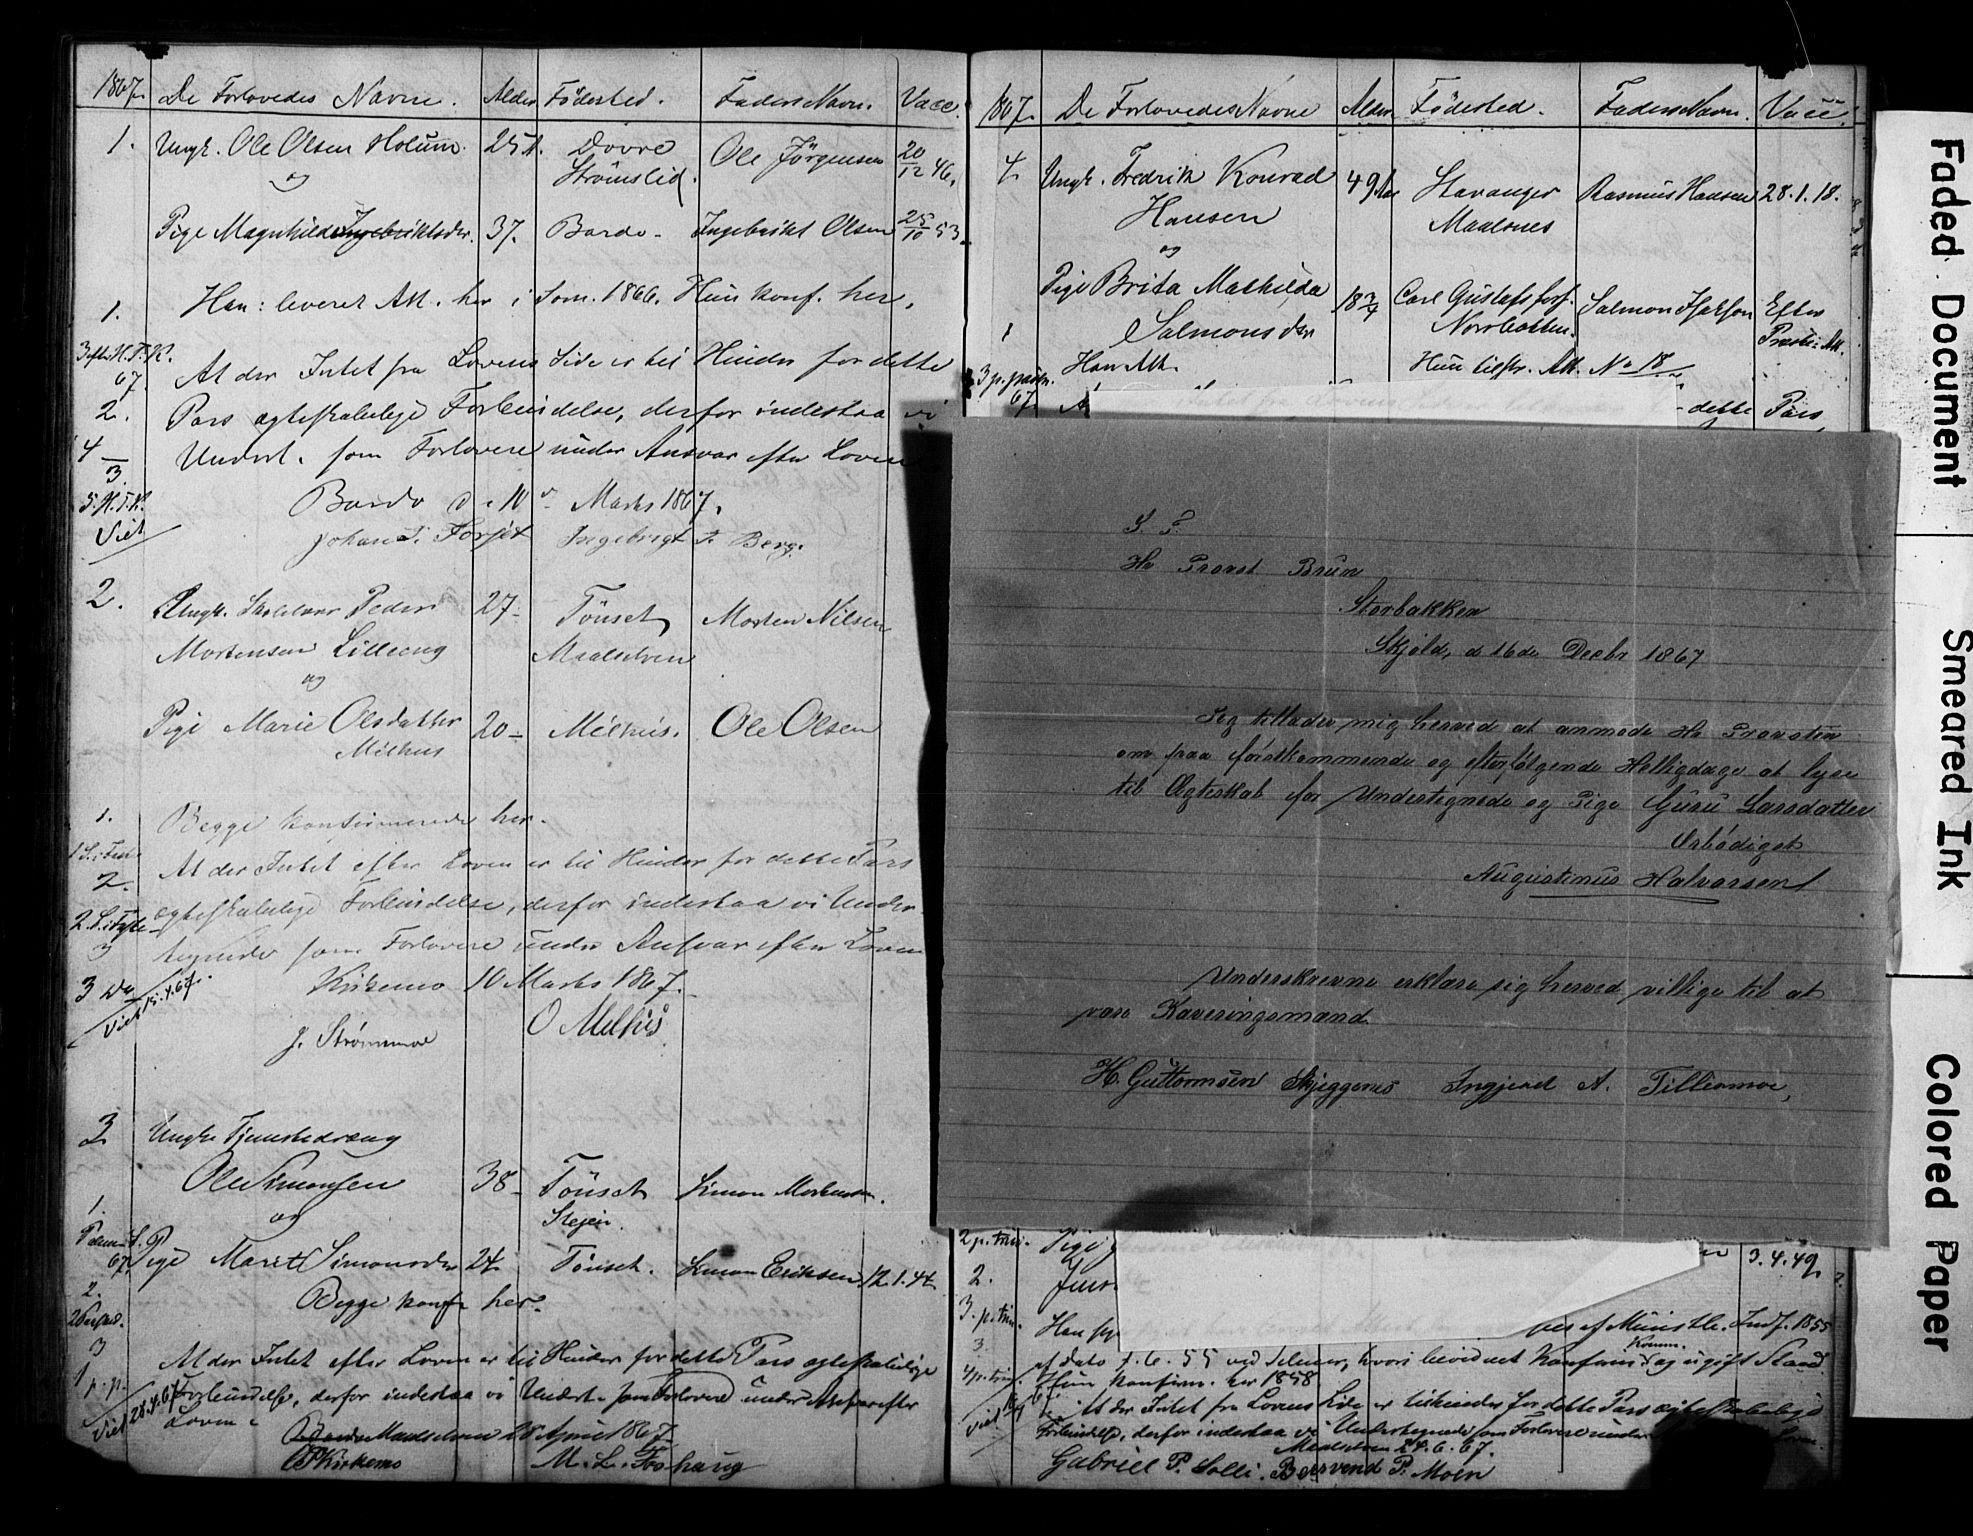 1867. De Forlovedes Navne. Alder Födested. Faders Navn. Vacc.
1. Ungk. Ole Olsen Holum. 25 A. Dovre Ole Jörgensen 20/12 46.
og Strömslid.
Pige Magnhild Ingebriktsdr. 37. Bardo - Ingebrikt Olsen 25/10 53.
1. Han: leveret Att. her i Som. 1866. Hun konf. her.
3 efter H. T. K.
67. At der Intet fra Lovens Side er til Hinder for dette
2. Pars ægteskabelige Forbindelse, derfor indestaa vi
4 Undert. som Forlovere under Ansvar efter Loven
3.
5. H. T. K. Bardo d. 10 Marts 1867.
Viet Johan Forset Ingebrigt T. Berg.
2. Ungk. Skolelærer Peder 27- Tönset Morten Nilsen
Mortensen Lilleeng Maalselven
og
Pige Marie Olsdatter 20- Melhus. Ole Olsen
Melhus
1. Begge konfirmerede her.
1 S. i Faste
2. At der Intet efter Loven er til Hinder for dette Pars
2. S. i Faste ægteskabelige Forbindelse, derfor indestaa vi Under-
3 tegnede som Forlovere under Ansvar efter Loven
3 Do Kirkemo 10 Marts 1867.
Viet 15.4.67.
J. Strømmoe O Melhus
3 Ungk. Tjenestedreng
Ole Simonsen 38- Tönset Simon Mortensen.
1. og Stejen.
Palme S.
67. Pige Marit Simonsdr 24. Tönset. Simon Eriksen 12.1.44
2. Begge konf. her.
2 Paaskd.
3 At der Intet efter Loven er til Hinder for dette Pars ægteskabelige
1 p. p. Forbindelse, derfor indestaa vi Undert. som Forlovere under Ansvar efter
Viet 28.4.67 Loven.
Maalselven 28 April 1867
O Kirkemo M. L. Fosshaug
1867. De Forlovedes Navne Alder Födested. Faders Navn. Vacc.
4. Ungk. Fredrik Konrad 49 Aar Stavanger Rasmus Hansen 28.1.18.
Hansen Maalsnes
og
Pige Brita Mathilda 18 3/4 Carl Gustafs fors. Salmon Isakson Efter
1 Salmonsdr Norrbotten. Præste-Att.
3 p. paask. Han Att. Hun tilstr. Att. No 18
67. dette Pars
S. T.
Hr Provst Brun
Storbakken
Skjold, d 16de Decbr 1867
Jeg tillader mig herved at anmode Hr Provsten
om paa förstkommende og efterfölgende Helligdage at lyse
til Ægteskab for Undertegnede og Pige Guru Larsdatter
Ærbödigst
Augustinus Halvorsen
Underskrevne erklære sig herved villige til at
være Kaveringsmænd
H. Guttormsen Skjeggenes Ingjerd A. Tilliermoe,
2 p. trin. Pige
2. Jens 3.4.49
3. p. trin. Han af Minstle. Indf. 1855
3 af dato 7.6.55 ved Selmer, hvori bevidnet Konfirm. Komm. og ugift Stand
4 p. trin. Hun konfirm. her 1858
Viet At der Intet fra Lovens Side er til Hinder for dette Pars ægteskabelige
Forbindelse, derfor indestaa vi Undertegnede som Forlovere under
Maalselven 24.6.67.
Gabriel P. Solli. Bersvend P. Moen
Faded Document
Smeared Ink
Colored Paper